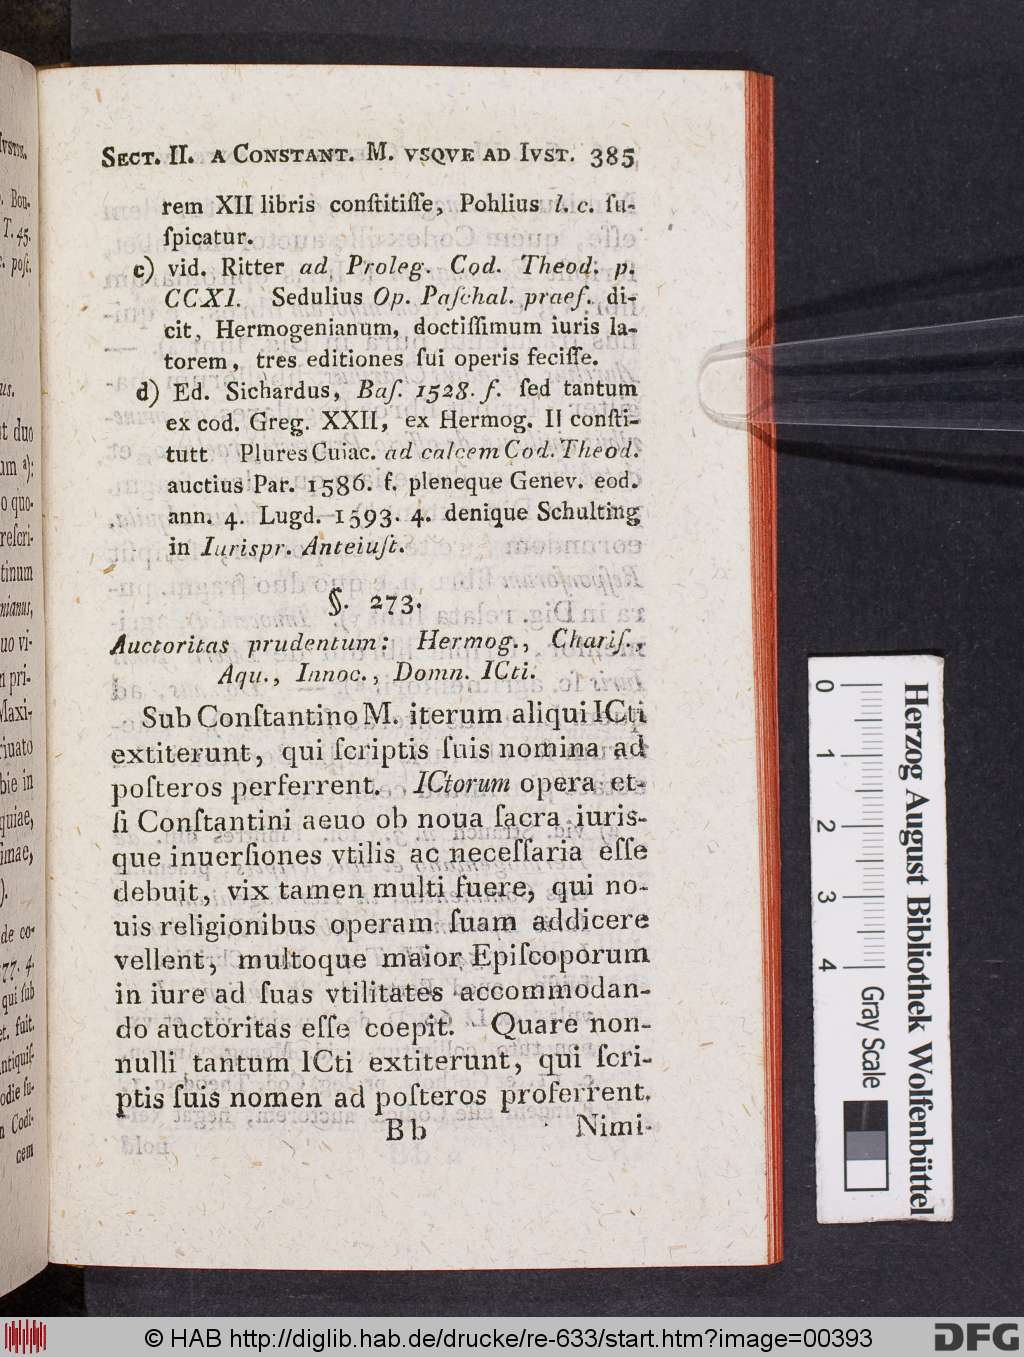 Sect. II. a Constant. M. vsqve ad Ivst. 385
rem XII libris conſtitiſſe, Pohlius l. c. ſu-
ſpicatur.
c) vid. Ritter ad Proleg. Cod. Theod. p.
CCXI. Sedulius Op. Paſchal. praeſ. di-
cit, Hermogenianum, doctiſſimum iuris la-
torem, tres editiones ſui operis feciſſe.
d) Ed. Sichardus, Baſ. 1528. f. ſed tantum
ex cod. Greg. XXII, ex Hermog. II conſti-
tutt Plures Cuiac. ad calcem Cod. Theod.
auctius Par. 1586. f. pleneque Genev. eod.
ann. 4. Lugd. 1593. 4. denique Schulting
in Iurispr. Anteiuſt.
§. 273.
Auctoritas prudentum: Hermog., Chariſ.,
Aqu., Innoc., Domn. ICti.
Sub Conſtantino M. iterum aliqui ICti
extiterunt, qui ſcriptis ſuis nomina ad
poſteros perferrent. ICtorum opera et-
ſi Conſtantini aeuo ob noua ſacra iuris-
que inuerſiones vtilis ac neceſſaria eſſe
debuit, vix tamen multi fuere, qui no-
uis religionibus operam ſuam addicere
vellent, multoque maior Epiſcoporum
in iure ad ſuas vtilitates accommodan-
do auctoritas eſſe coepit. Quare non-
nulli tantum ICti extiterunt, qui ſcri-
ptis ſuis nomen ad poſteros proferrent.
Bb Nimi-
Ivstin.
Bon-
T. 45.
c. poſt.
us.
t duo
um a):
o quo-
reſcri-
tinum
nianus,
uo vi-
n pri-
Maxi-
riuato
bie in
quiae,
ſimae,
).
de co-
77. 4.
qui ſub
et. fuit.
ntiquiſ-
odie ſu-
n Codi-
cem
0 1 2 3 4
Herzog August Bibliothek Wolfenbüttel
Gray Scale
© HAB http://diglib.hab.de/drucke/re-633/start.htm?image=00393
DFG